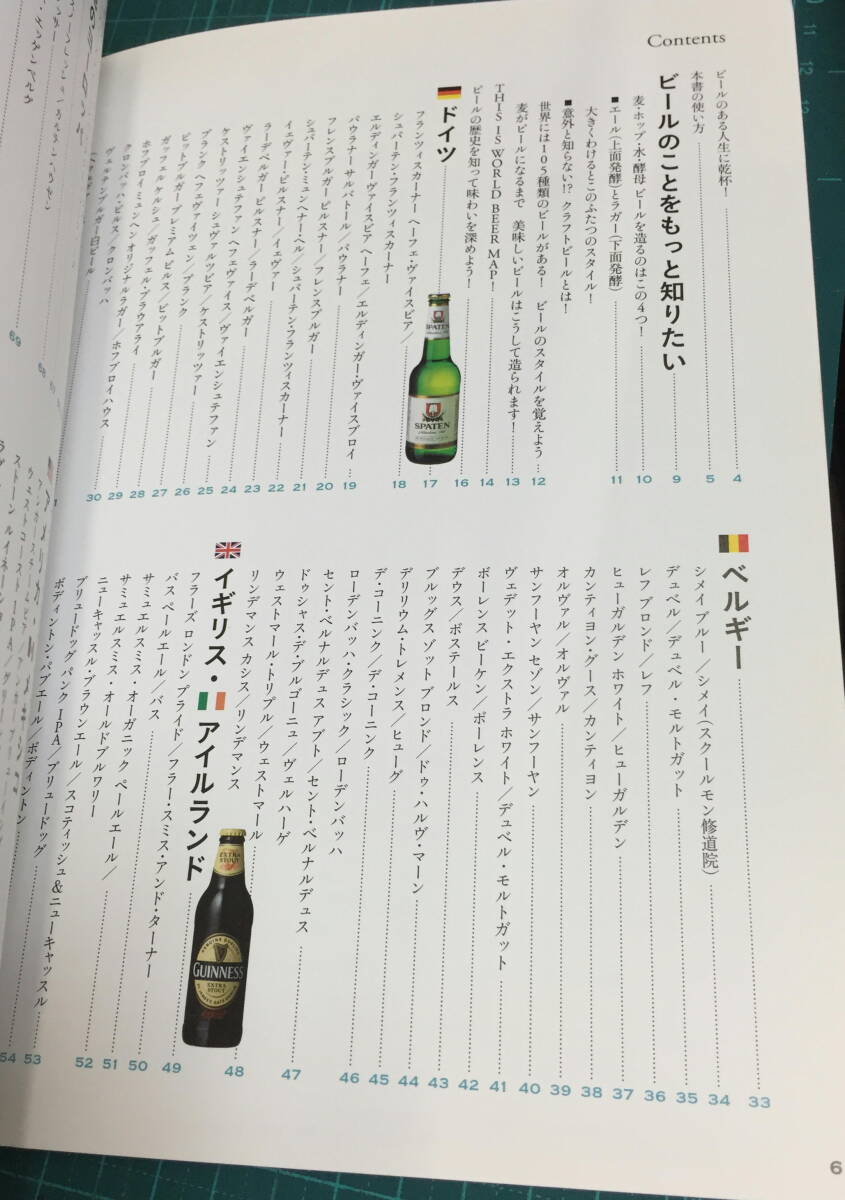 Contents
ビールのある人生に乾杯! 4
本書の使い方 5
ビールのことをもっと知りたい 9
麦・ホップ・水・酵母 ビールを造るのはこの4つ! 10
■エール(上面発酵)とラガー(下面発酵)
大きくわけるとこのふたつのスタイル! 11
■意外と知らない!? クラフトビールとは!
世界には105種類のビールがある! ビールのスタイルを覚えよう 12
麦がビールになるまで 美味しいビールはこうして造られます! 13
THIS IS WORLD BEER MAP! 14
ビールの歴史を知って味わいを深めよう! 16
ドイツ 17
フランツィスカーナー ヘーフェ・ヴァイスビア/
シュパーテン・フランツィスカーナー 18
エルディンガー ヴァイスビア ヘーフェ/エルディンガー・ヴァイスブロイ 19
パウラナー サルバトール/パウラナー 20
フレンスブルガー ピルスナー/フレンスブルガー 21
シュパーテン・ミュンヘナー・ヘル/シュパーテン・フランツィスカーナー 22
イェヴァー・ピルスナー/イェヴァー 23
ラーデベルガー ピルスナー/ラーデベルガー 24
ヴァイエンシュテファン ヘフェヴァイス/ヴァイエンシュテファン
ケストリッツァー シュヴァルツビア/ケストリッツァー 25
ブランク ヘフェヴァイツェン/ブランク 26
ビットブルガー プレミアム ピルス/ビットブルガー 27
ガッフェル ケルシュ/ガッフェル・ブラウアライ 28
ホフブロイ ミュンヘン オリジナルラガー/ホフブロイハウス 29
クロンバッハ・ピルス/クロンバッハ 30
ヴェルテンブルガー
白ビール
SPATEN
ベルギー 33
シメイ ブルー/シメイ(スクールモン修道院) 34
デュベル/デュベル・モルトガット 35
レフ ブロンド/レフ 36
ヒューガルデン ホワイト/ヒューガルデン 37
カンティヨン・グース/カンティヨン 38
オルヴァル/オルヴァル 39
サンフーヤン セゾン/サンフーヤン 40
ヴェデット・エクストラ ホワイト/デュベル・モルトガット 41
ボーレンス ビーケン/ボーレンス 42
デウス/ボステールス 43
ブルッグス ゾット ブロンド/ドゥ・ハルヴ・マーン 44
デリリウム・トレメンス/ヒューグ 45
デ・コーニンク/デ・コーニンク 46
ローデンバッハ・クラシック/ローデンバッハ
セント・ベルナルデュス アプト/セント・ベルナルデュス
ドゥシャス・デ・ブルゴーニュ/ヴェルハーゲ 47
ウェストマール・トリプル/ウェストマール
リンデマンス カシス/リンデマンス 48
イギリス・アイルランド 49
フラーズ ロンドン プライド/フラー・スミス・アンド・ターナー 50
バス ペールエール/バス 51
サミュエルスミス・オーガニック ペールエール/
サミュエルスミス・オールドブルワリー 52
ニューキャッスル・ブラウンエール/スコティッシュ&ニューキャッスル 53
ブリュードッグ パンク IPA/ブリュードッグ 54
ボディントン・パブエール/ボディントン
EXTRA STOUT
GUINNESS
EXTRA STOUT
69
68
6